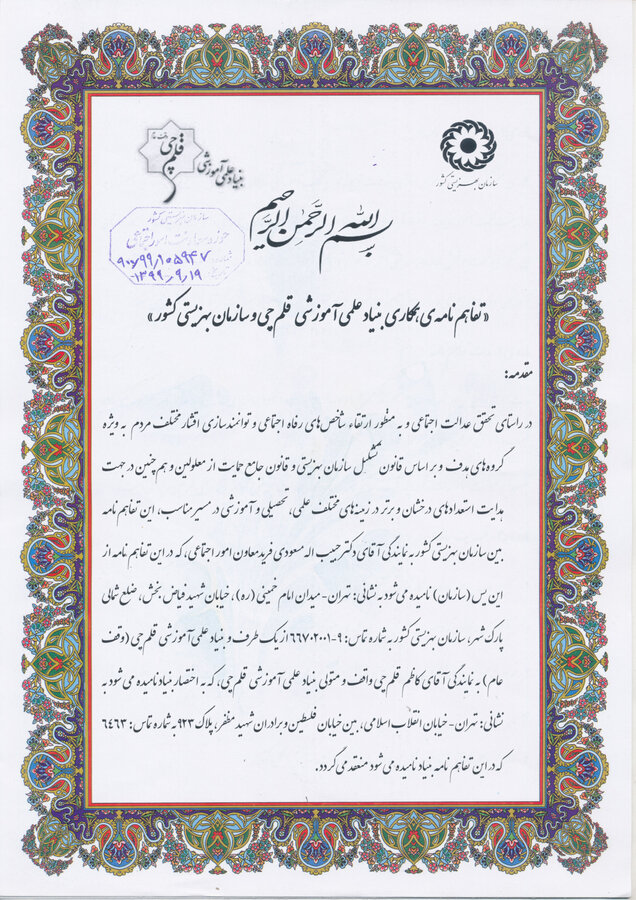 بنیاد علمی آموزشی
قلم چی
سازمان بهزیستی کشور
سازمان بهزیستی کشور
۹۰۰/۹۹/۱۰۵۹۴۷
۱۳۹۹/۹/۱۹
بسم الله الرحمن الرحیم
«تفاهم نامه ی همکاری بنیاد علمی آموزشی قلم چی و سازمان بهزیستی کشور»
مقدمه:
در راستای تحقق عدالت اجتماعی و به منظور ارتقاء شاخص های رفاه اجتماعی و توانمندسازی اقشار مختلف مردم به ویژه
گروه های هدف و بر اساس قانون تشکیل سازمان بهزیستی و قانون جامع حمایت از معلولین و هم چنین در جهت
هدایت استعدادهای درخشان و برتر در زمینه های مختلف علمی، تحصیلی و آموزشی در مسیر مناسب، این تفاهم نامه
بین سازمان بهزیستی کشور به نمایندگی آقای دکتر حبیب اله مسعودی فرید معاون امور اجتماعی، که در این تفاهم نامه از
این پس (سازمان) نامیده می شود به نشانی: تهران- میدان امام خمینی (ره)، خیابان شهید فیاض بخش، ضلع شمالی
پارک شهر، سازمان بهزیستی کشور به شماره تماس: ۹-۶۶۷۰۲۰۰۱ از یک طرف و بنیاد علمی آموزشی قلم چی (وقف
عام) به نمایندگی آقای کاظم قلم چی واقف و متولی بنیاد علمی آموزشی قلم چی، که به اختصار بنیاد نامیده می شود به
نشانی: تهران- خیابان انقلاب اسلامی، بین خیابان فلسطین و برادران شهید مظفر، پلاک ۹۲۳ به شماره تماس: ۶۴۶۳
که در این تفاهم نامه بنیاد نامیده می شود منعقد می گردد.